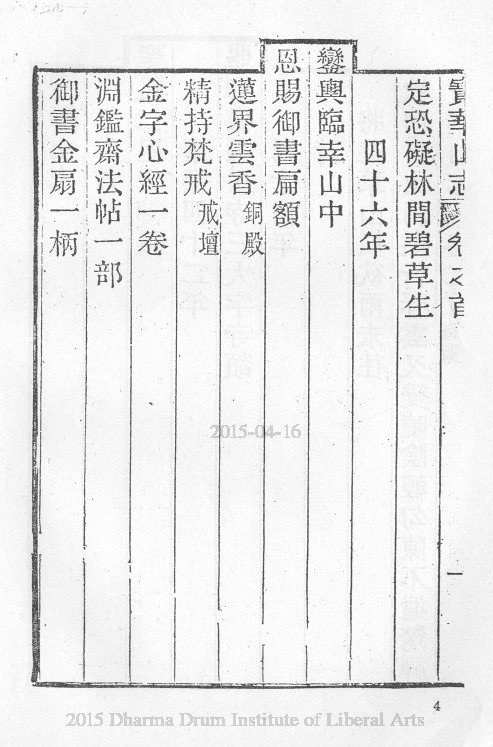 寶華山志 卷之首
定恐礙林間碧草生
四十六年
鑾輿臨幸山中
恩賜御書扁額
蓮界雲香 銅殿
精持梵戒 戒壇
金字心經一卷
淵鑑齋法帖一部
御書金扇一柄
一
2015-04-16
4
2015 Dharma Drum Institute of Liberal Arts